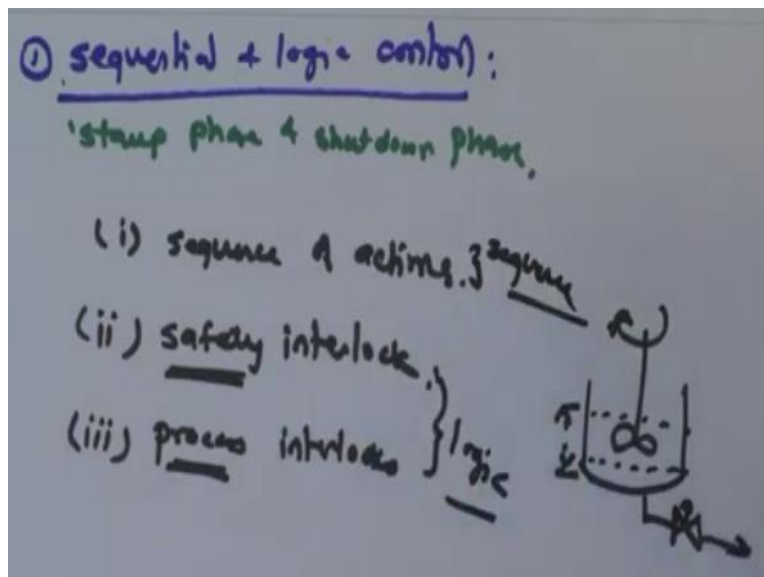 ① sequential & logic control:
'startup phase & shutdown phase.
(i) sequence of actions. } sequence
(ii) safety interlock.
(iii) process interlocks } logic